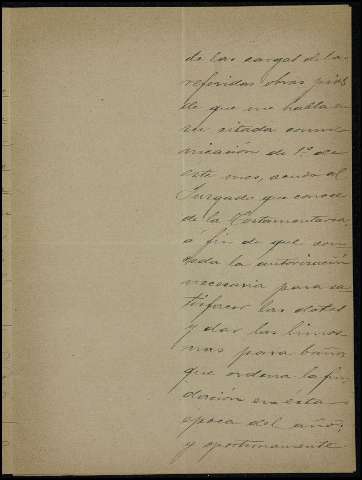 de las cargas de las
referidas obras pias
de que me habla en
su citada comu-
nicación de 1º de
este mes, acudo al
Juzgado que conoce
de la Testamentaria,
á fin de que con-
ceda la autorización
necesaria para sa-
tisfacer las dotes
y dar las limos-
nas para baños
que ordena la fun-
dación en esta
epoca del año;
y oportunamente